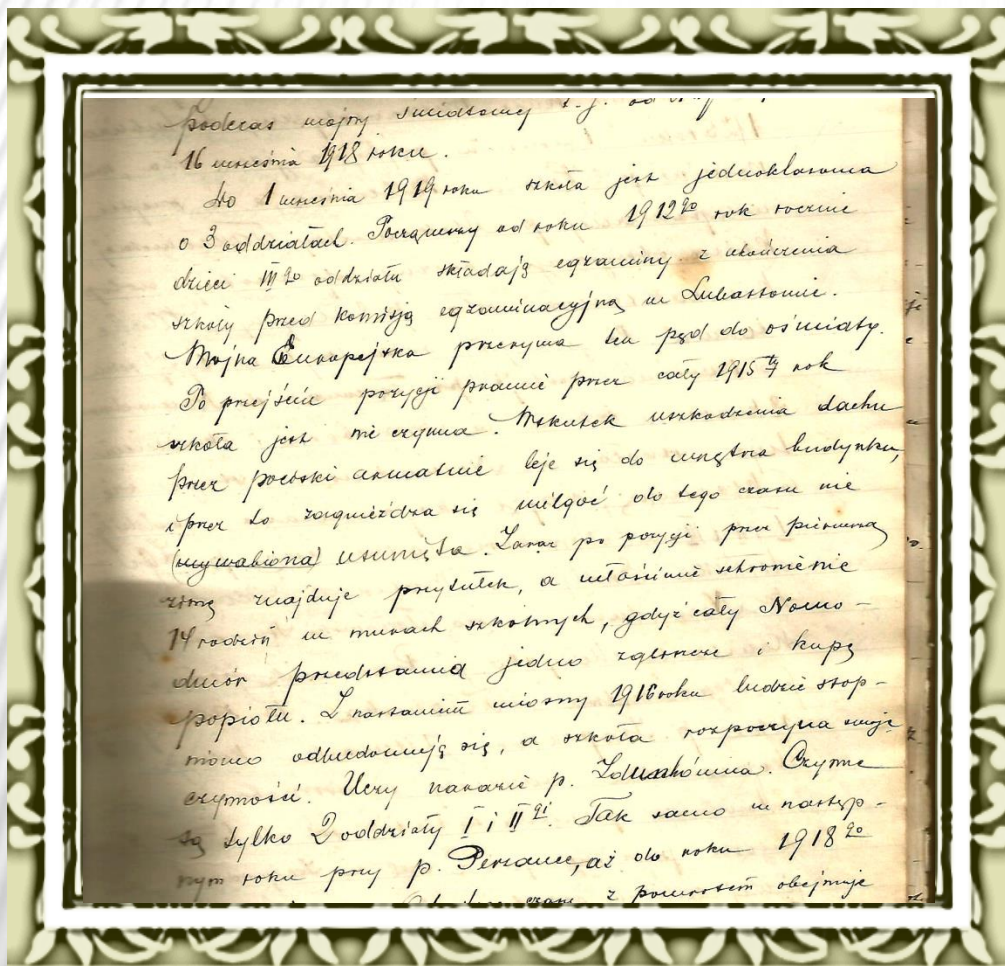 Podczas wojny światowej t. j. od
16 września 1918 roku.
Do 1 września 1919 roku szkoła jest jednoklasowa
o 3 oddziałach. Począwszy od roku 1912go rok rocznie
dzieci IIIgo oddziału składają egzaminy z ukończenia
szkoły przed komisją egzaminacyjną w Lubartowie.
Wojna Europejska przerywa ten pęd do oświaty.
Po przejściu pozycji prawie przez cały 1915ty rok
szkoła jest nieczynna. Wskutek uszkodzenia dachu
przez pociski armatnie leje się do wnętrza budynku,
i przez to zagnieżdża się wilgoć do tego czasu nie
(wywabiona) usunięta. Zaraz po pozycji przez pierwszą
zimę znajduje przytułek, a właściwie schronienie
14 rodzin w murach szkolnych, gdyż cały Nowo-
dwór przedstawia jedno zgliszcze i kupę
popiołu. Z nastaniem wiosny 1916 roku ludzie stop-
niowo odbudowują się, a szkoła rozpoczyna swoje
czynności. Uczy narazie p. Czynne
są tylko 2 oddziały I i IIgi. Tak samo w następ-
nym roku przy p. aż do roku 1918go
czasu z powrotem obejmuje